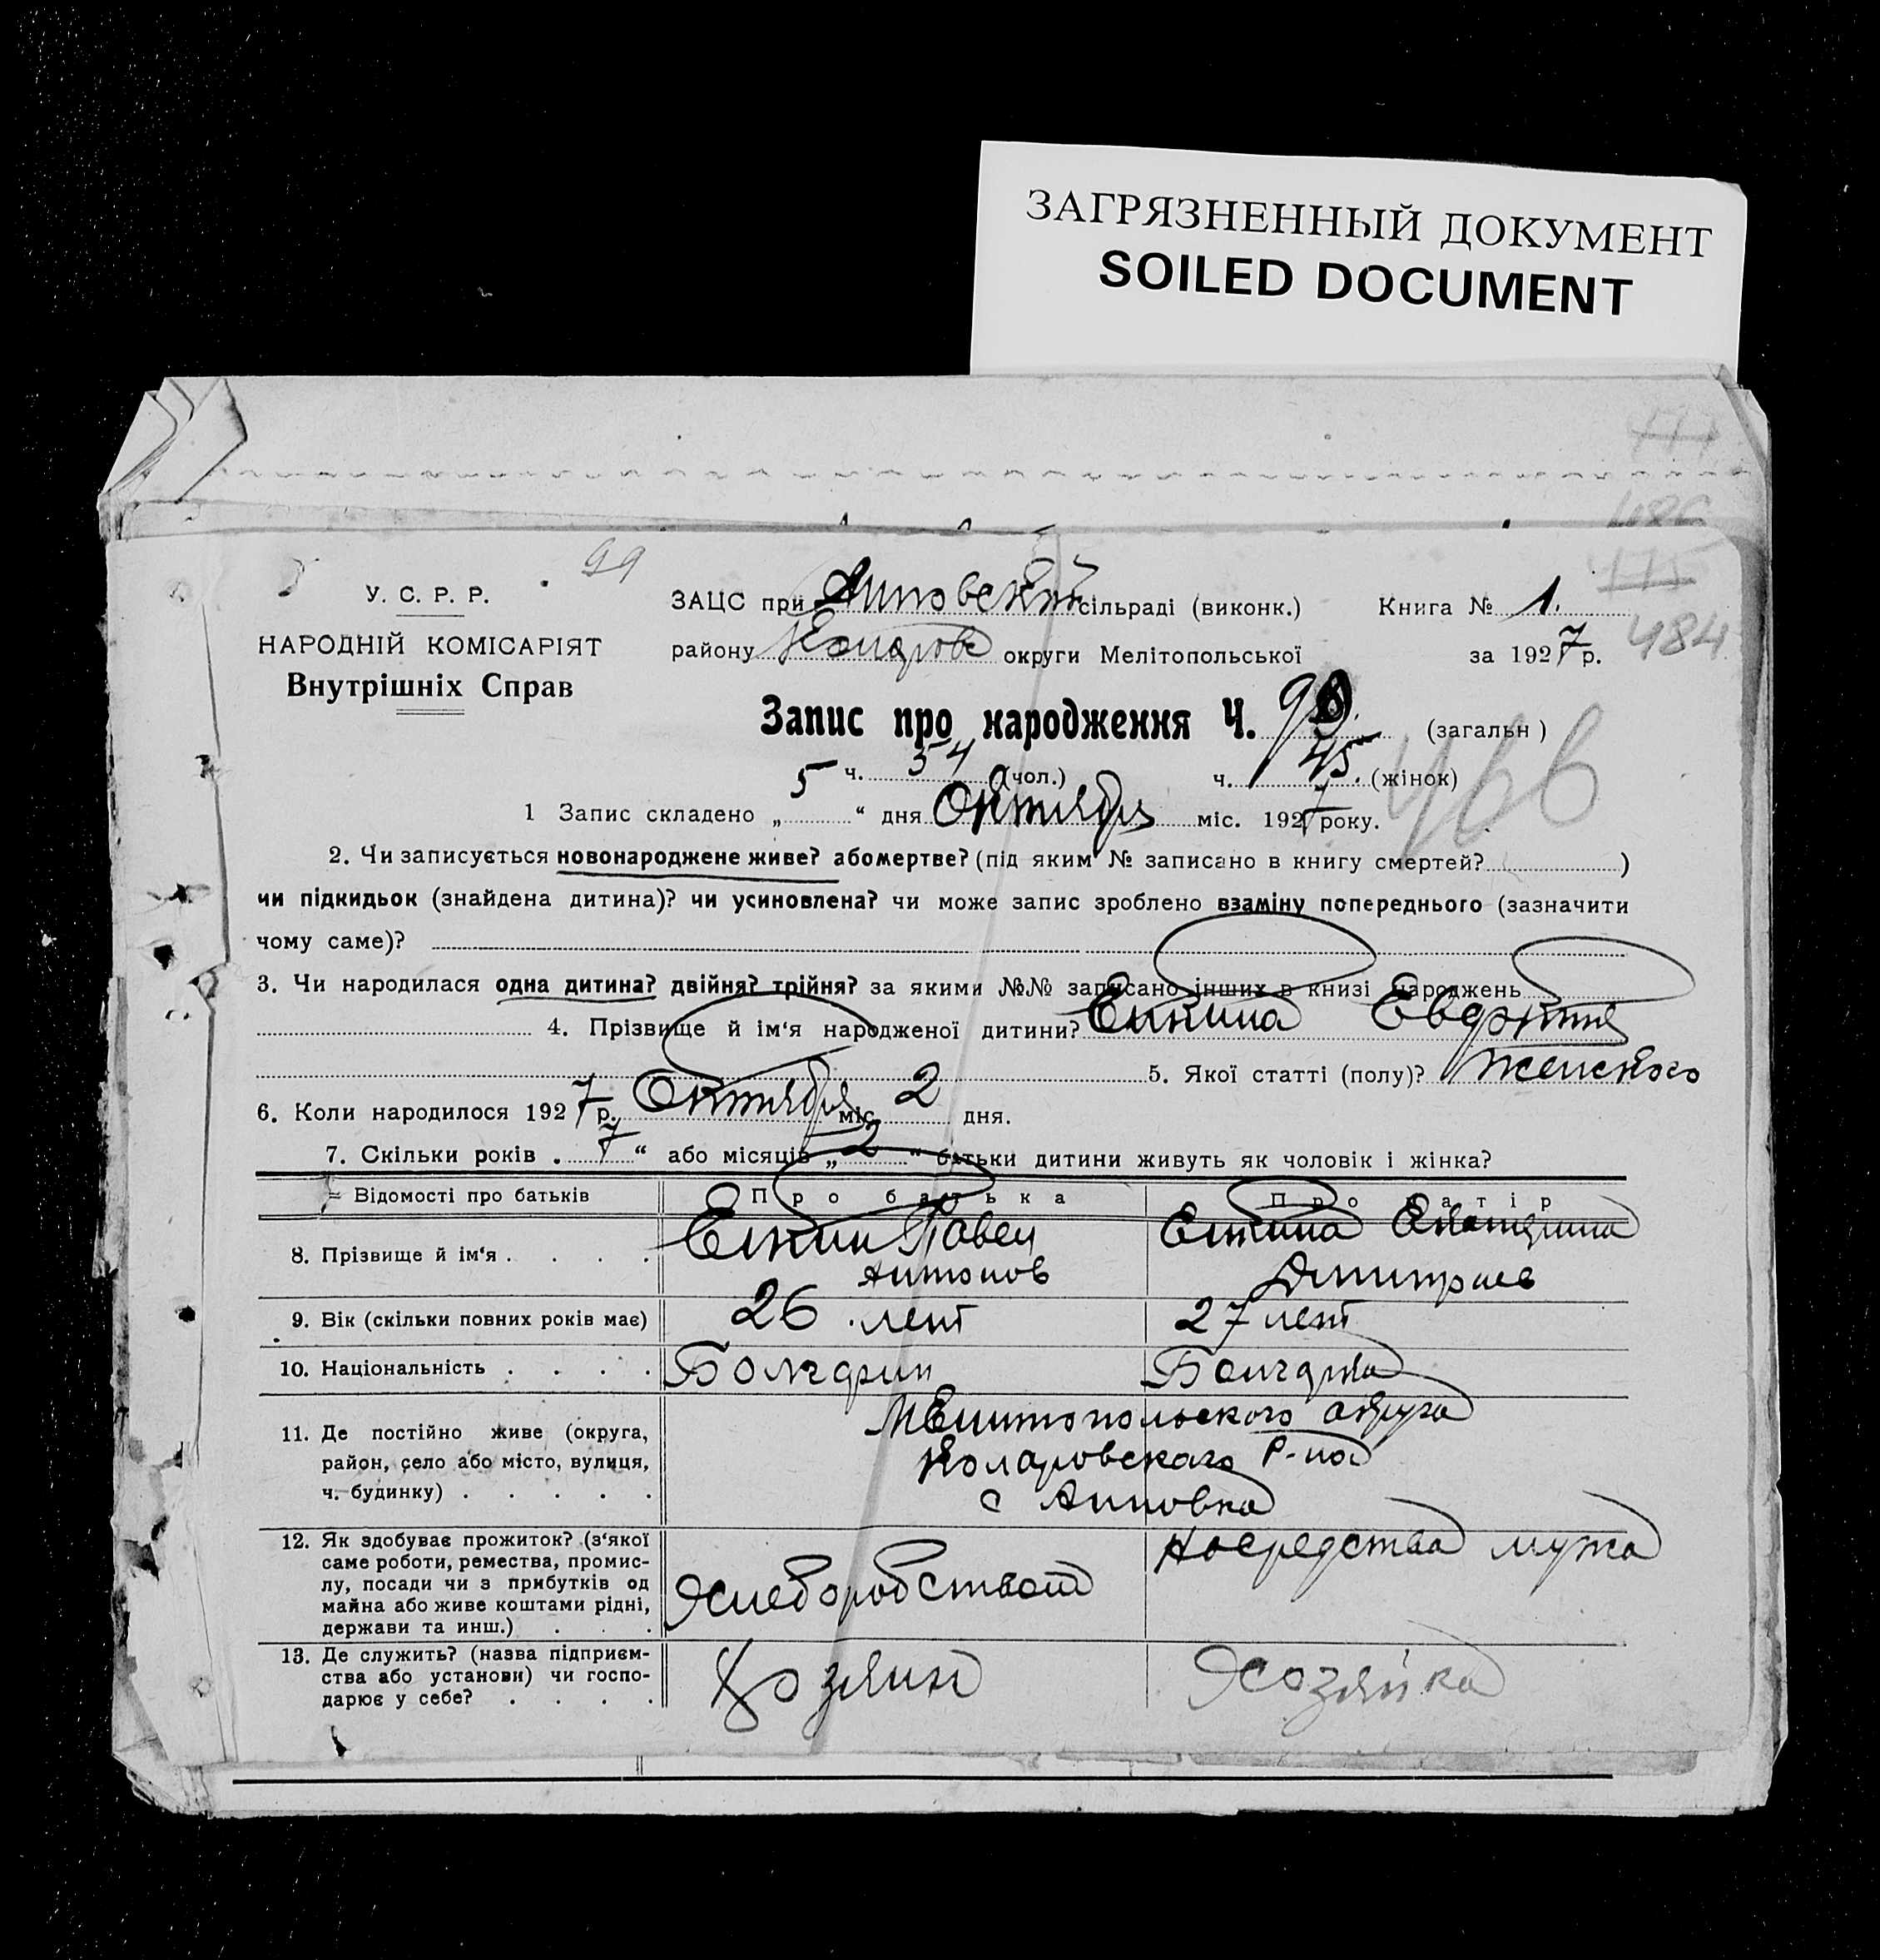 ЗАГРЯЗНЕННЫЙ ДОКУМЕНТ
SOILED DOCUMENT
484
99
У. С. Р. Р.
НАРОДНІЙ КОМІСАРІЯТ
Внутрішніх Справ
ЗАЦС при сільраді (виконк.) Книга № 1.
району округи Мелітопольської за 1927 р.
Запис про народження Ч. 99 (загальн)
ч. 54 (чол.) ч. 45. (жінок)
1 Запис складено „ 5 “ дня Октября міс. 1927 року.
2. Чи записується новонароджене живе? або мертве? (під яким № записано в книгу смертей? )
чи підкидьок (знайдена дитина)? чи усиновлена? чи може запис зроблено взаміну попереднього (зазначити
чому саме)?
3. Чи народилася одна дитина? двійня? трійня? за якими №№ записано інших в книзі народжень
4. Прізвище й ім‘я народженої дитини? Елкина
5. Якої статті (полу)? Женского
6. Коли народилося 1927 р. Октября міс. 2 дня.
7. Скільки років . 7 “ або місяців „ 2 “ батьки дитини живуть як чоловік і жінка?
Відомості про батьків Про батька Про матір
8. Прізвище й ім‘я . . . . Елкин Павел Антонов Елкина Екатерина Дмитриев
9. Вік (скільки повних років має) 26 лет 27 лет
10. Національність . . . . Болгарин Болгарка
11. Де постійно живе (округа,
район, село або місто, вулиця,
ч. будинку) . . . . .
Мелитопольского округа
Коларовского Р-на
с Анновка
12. Як здобуває прожиток? (з‘якої
саме роботи, ремества, промис-
лу, посади чи з прибутків од
майна або живе коштами рідні,
держави та инш.) . . .
Хлеборобством
На средства мужа
13. Де служить? (назва підприєм-
ства або установи) чи госпо-
дарює у себе? . . . .
Хозяин Хозяйка